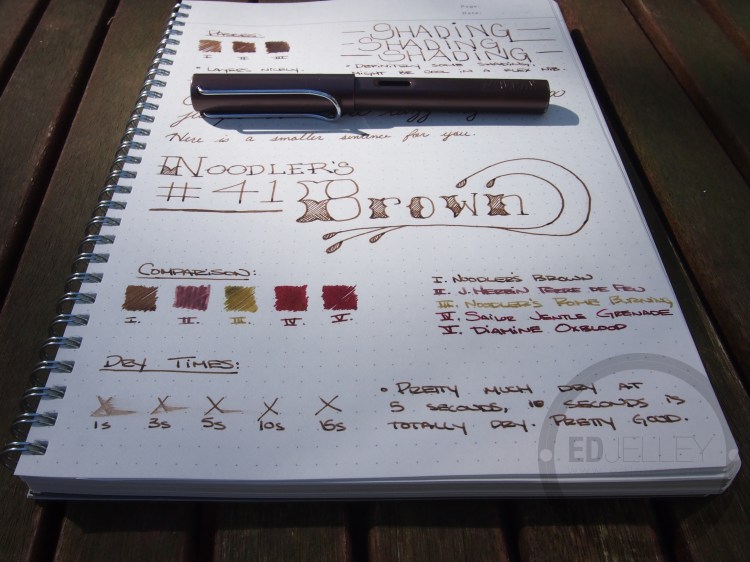 PASSES:
I II III
• LAYERS NICELY.
SHADING
SHADING
SHADING
• DEFINITELY SOME SHADING.
MIGHT BE NICE IN A FLEX NIB.
Here is a smaller sentence for you.
NOODLER'S
#41 Brown
COMPARISON:
I. II. III. IV. V.
I. NOODLER'S BROWN
II. J. HERBIN TERRE DE FEU
III. NOODLER'S ROME BURNING
IV. SAILOR JENTLE GRENADE
V. DIAMINE OXBLOOD
DRY TIMES:
1s 3s 5s 10s 15s
• PRETTY MUCH DRY AT
5 SECONDS, 10 SECONDS IS
TOTALLY DRY. PRETTY GOOD.
EDJELLEY